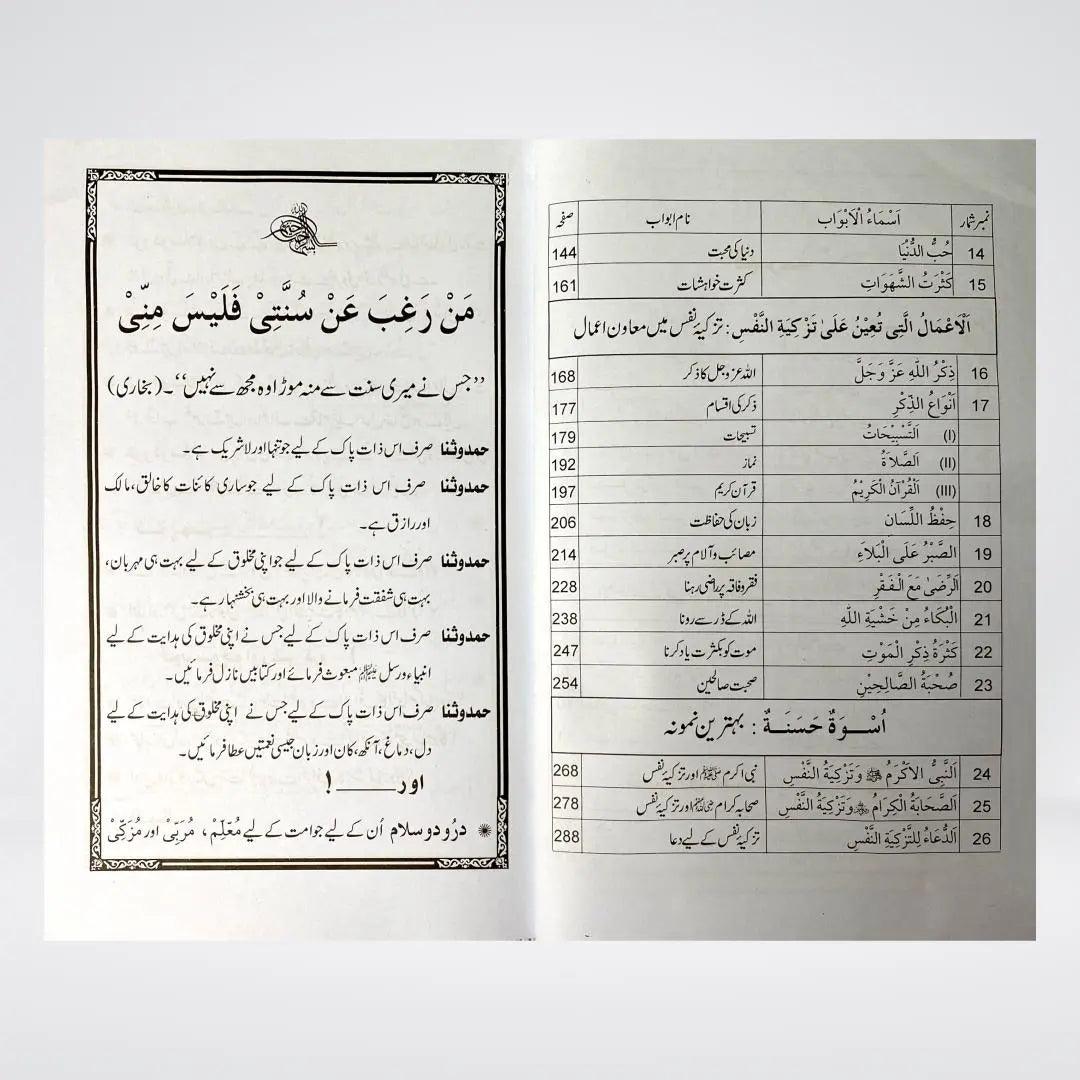 نمبر شمار اَسْمَاءُ الْاَبْوَاب نام ابواب صفحہ
14 حُبُّ الدُّنْیَا دنیا کی محبت 144
15 کَثْرَتُ الشَّهَوَاتِ کثرت خواہشات 161
اَلْاَعْمَالُ الَّتِی تُعِیْنُ عَلَیٰ تَزْکِیَةِ النَّفْسِ: تزکیۂ نفس میں معاون اعمال
16 ذِکْرُ اللهِ عَزَّ وَجَلَّ اللہ عزوجل کا ذکر 168
17 اَنْوَاعُ الذِّکْرِ ذکر کی اقسام 177
(I) اَلتَّسْبِیْحَاتُ تسبیحات 179
(II) اَلصَّلَاةُ نماز 192
(III) اَلْقُرْآنُ الْکَرِیْمُ قرآن کریم 197
18 حِفْظُ اللِّسَان زبان کی حفاظت 206
19 الصَّبْرُ عَلَی الْبَلَاءِ مصائب و آلام پر صبر 214
20 اَلرِّضَیٰ مَعَ الْفَقْرِ فقر و فاقہ پر راضی رہنا 228
21 اَلْبُکَاءُ مِنْ خَشْیَةِ اللهِ اللہ کے ڈر سے رونا 238
22 کَثْرَةُ ذِکْرِ الْمَوْتِ موت کو بکثرت یاد کرنا 247
23 صُحْبَةُ الصَّالِحِیْنِ صحبت صالحین 254
اُسْوَةٌ حَسَنَةٌ : بہترین نمونہ
24 اَلنَّبِیُّ الْاَکْرَمُ ﷺ وَتَزْکِیَةُ النَّفْسِ نبی اکرم ﷺ اور تزکیۂ نفس 268
25 اَلصَّحَابَةُ الْکِرَامُ وَتَزْکِیَةُ النَّفْسِ صحابہ کرام اور تزکیۂ نفس 278
26 اَلدُّعَاءُ لِلتَّزْکِیَةِ النَّفْسِ تزکیۂ نفس کے لیے دعا 288
مَنْ رَغِبَ عَنْ سُنَّتِیْ فَلَیْسَ مِنِّیْ
”جس نے میری سنت سے منہ موڑا وہ مجھ سے نہیں“۔ (بخاری)
حمدوثنا صرف اس ذات پاک کے لیے جو تنہا اور لاشریک ہے۔
حمدوثنا صرف اس ذات پاک کے لیے جو ساری کائنات کا خالق، مالک
اور رازق ہے۔
حمدوثنا صرف اس ذات پاک کے لیے جو اپنی مخلوق کے لیے بہت ہی مہربان،
بہت ہی شفقت فرمانے والا اور بہت ہی بخشنہار ہے۔
حمدوثنا صرف اس ذات پاک کے لیے جس نے اپنی مخلوق کی ہدایت کے لیے
انبیاء و رسل ﷺ مبعوث فرمائے اور کتابیں نازل فرمائیں۔
حمدوثنا صرف اس ذات پاک کے لیے جس نے اپنی مخلوق کی ہدایت کے لیے
دل، دماغ، آنکھ، کان اور زبان جیسی نعمتیں عطا فرمائیں۔
اور ــــــــ !
درُود و سلام اُن کے لیے جو امت کے لیے مُعَلِّمْ، مُرَبِّیْ اور مُزَکِّیْ